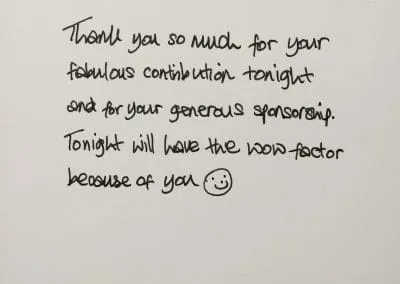 Thank you so much for your
fabulous contribution tonight
and for your generous sponsorship.
Tonight will have the wow factor
because of you ☺